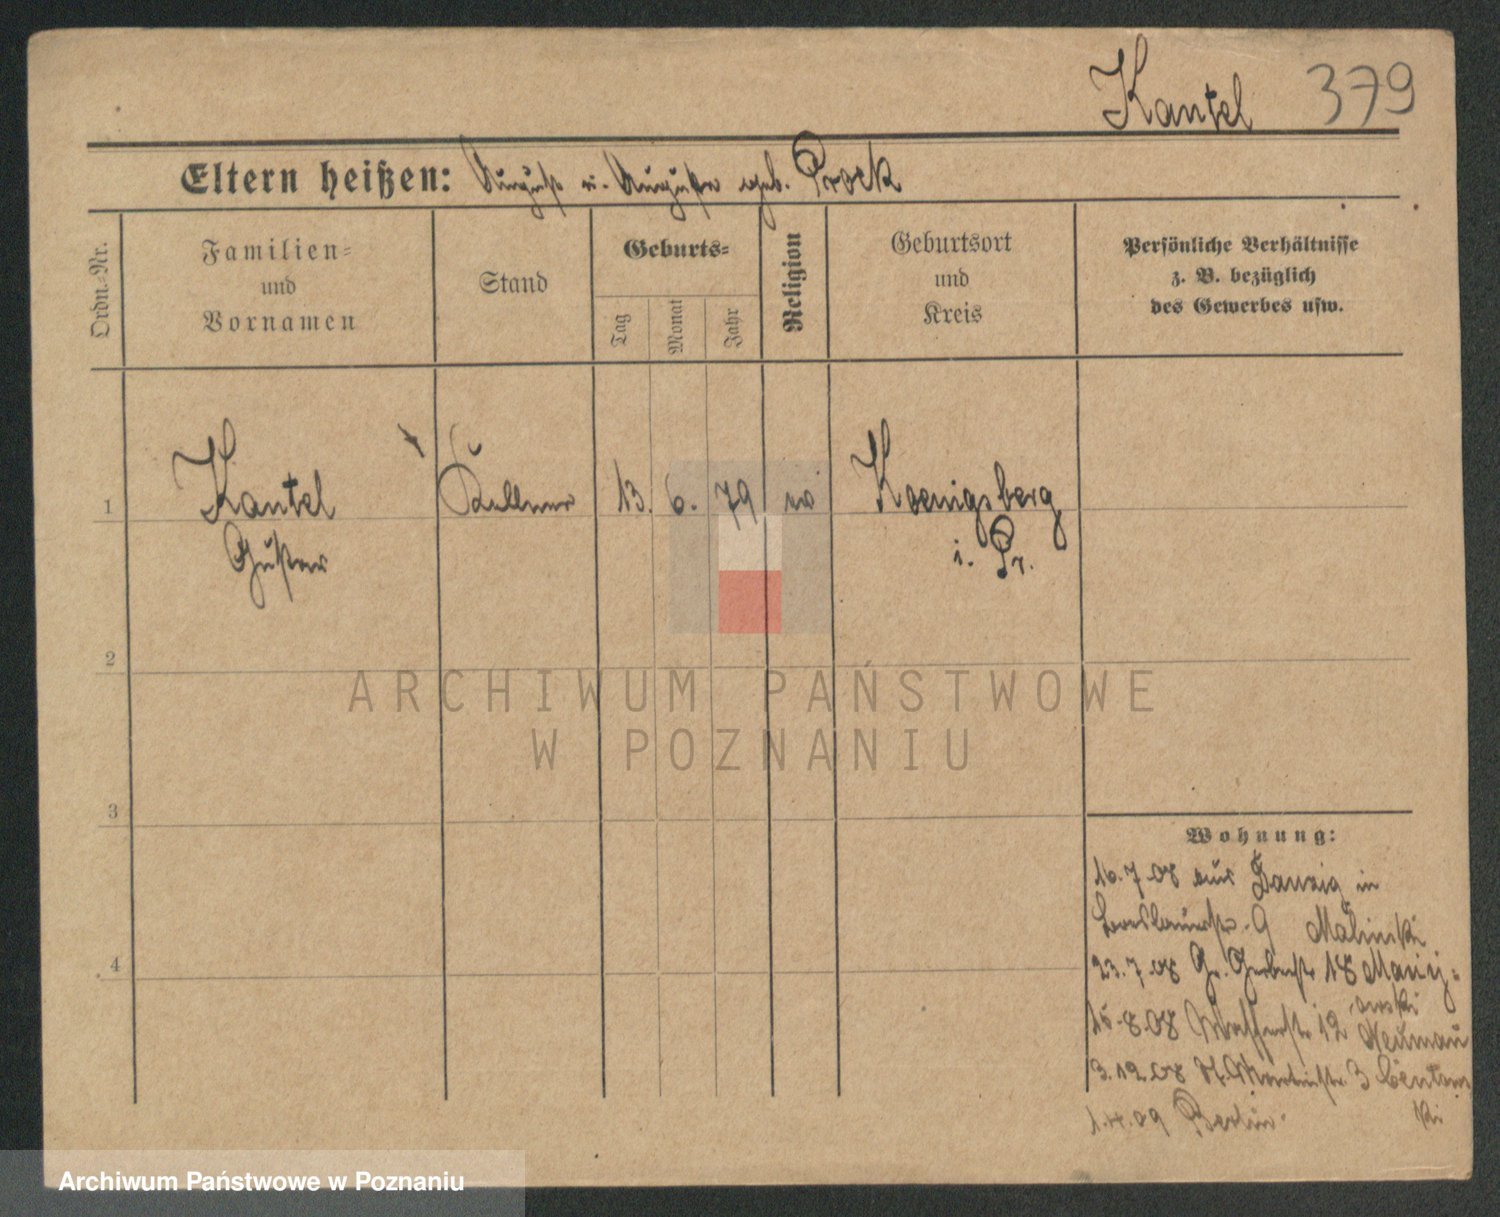 Kantel 379
Eltern heißen: August u. Auguste geb. Prock
Ordn.-Nr.
Familien-
und
Vornamen
Stand
Geburts-
Tag
Monat
Jahr
Religion
Geburtsort
und
Kreis
Persönliche Verhältnisse
z. B. bezüglich
des Gewerbes usw.
1 Kantel Kellner 13. 6. 79 ev Koenigsberg
Gustav i. Pr.
2
3
4
Wohnung:
16.7.08 aus Danzig in
Breslauerstr. 9 Malinski
23.7.08 Gr. Gerberstr 18
15.8.08 Wasserstr. 12 Neumau
3.12.08 St. Martinstr. 3
1.4.09 Berlin.
ARCHIWUM PAŃSTWOWE
W POZNANIU
Archiwum Państwowe w Poznaniu